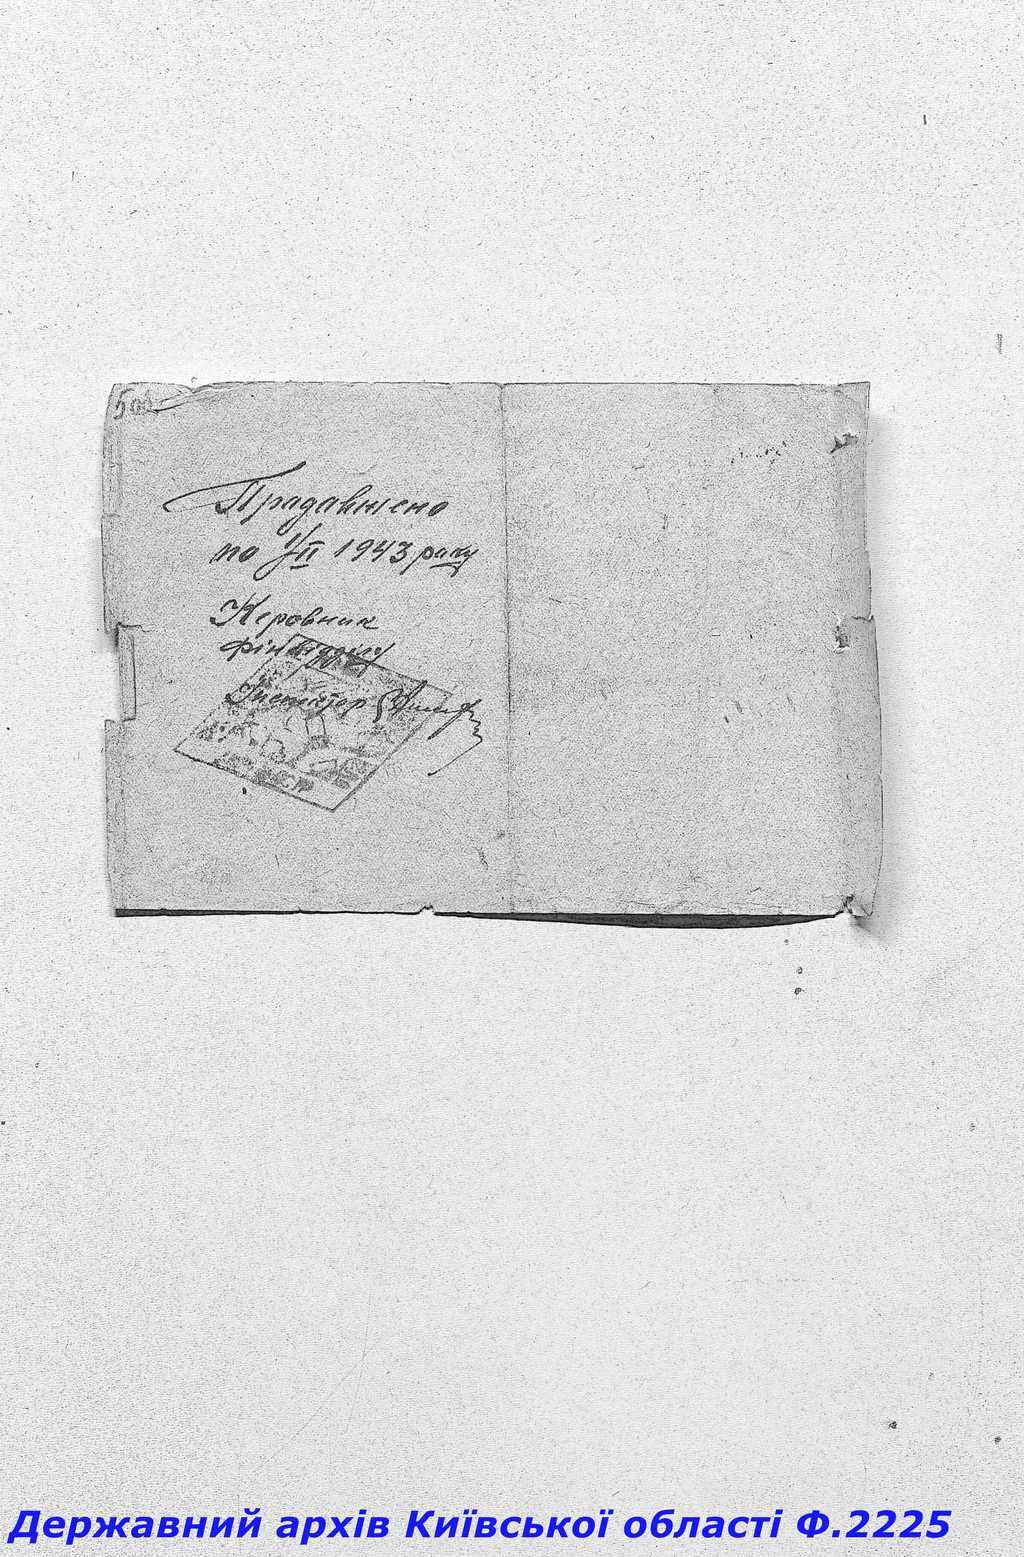 Прадавжено
по 1/II 1943 року
Керовник
фінвідділу
Інспектор
Державний архів Київської області Ф.2225